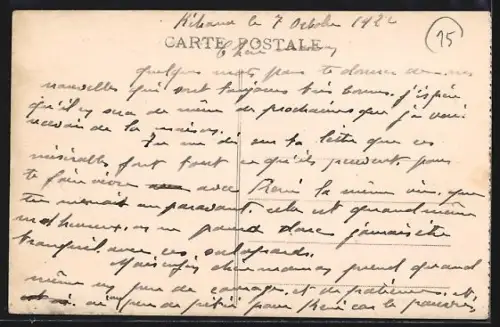 le 7 Octobre 192
15
CARTE POSTALE
Chère
quelques mots pour te donner de mes
nouvelles qui sont toujours très bonnes. j'espère
qu'il en sera de même des prochaines que je vais
recevoir de la maison.
Tu me dis sur ta lettre que ces
misérables font tout ce qu'ils peuvent pour
te faire vivre avec René la même vie que
tu menait auparavant. cela est quand même
malheureux, on ne peut donc jamais être
tranquil avec ces salopards.
Mais enfin chère maman prend quand
même un peu de courage et de patience. et
ai un peu de pitié pour René car le pauvre